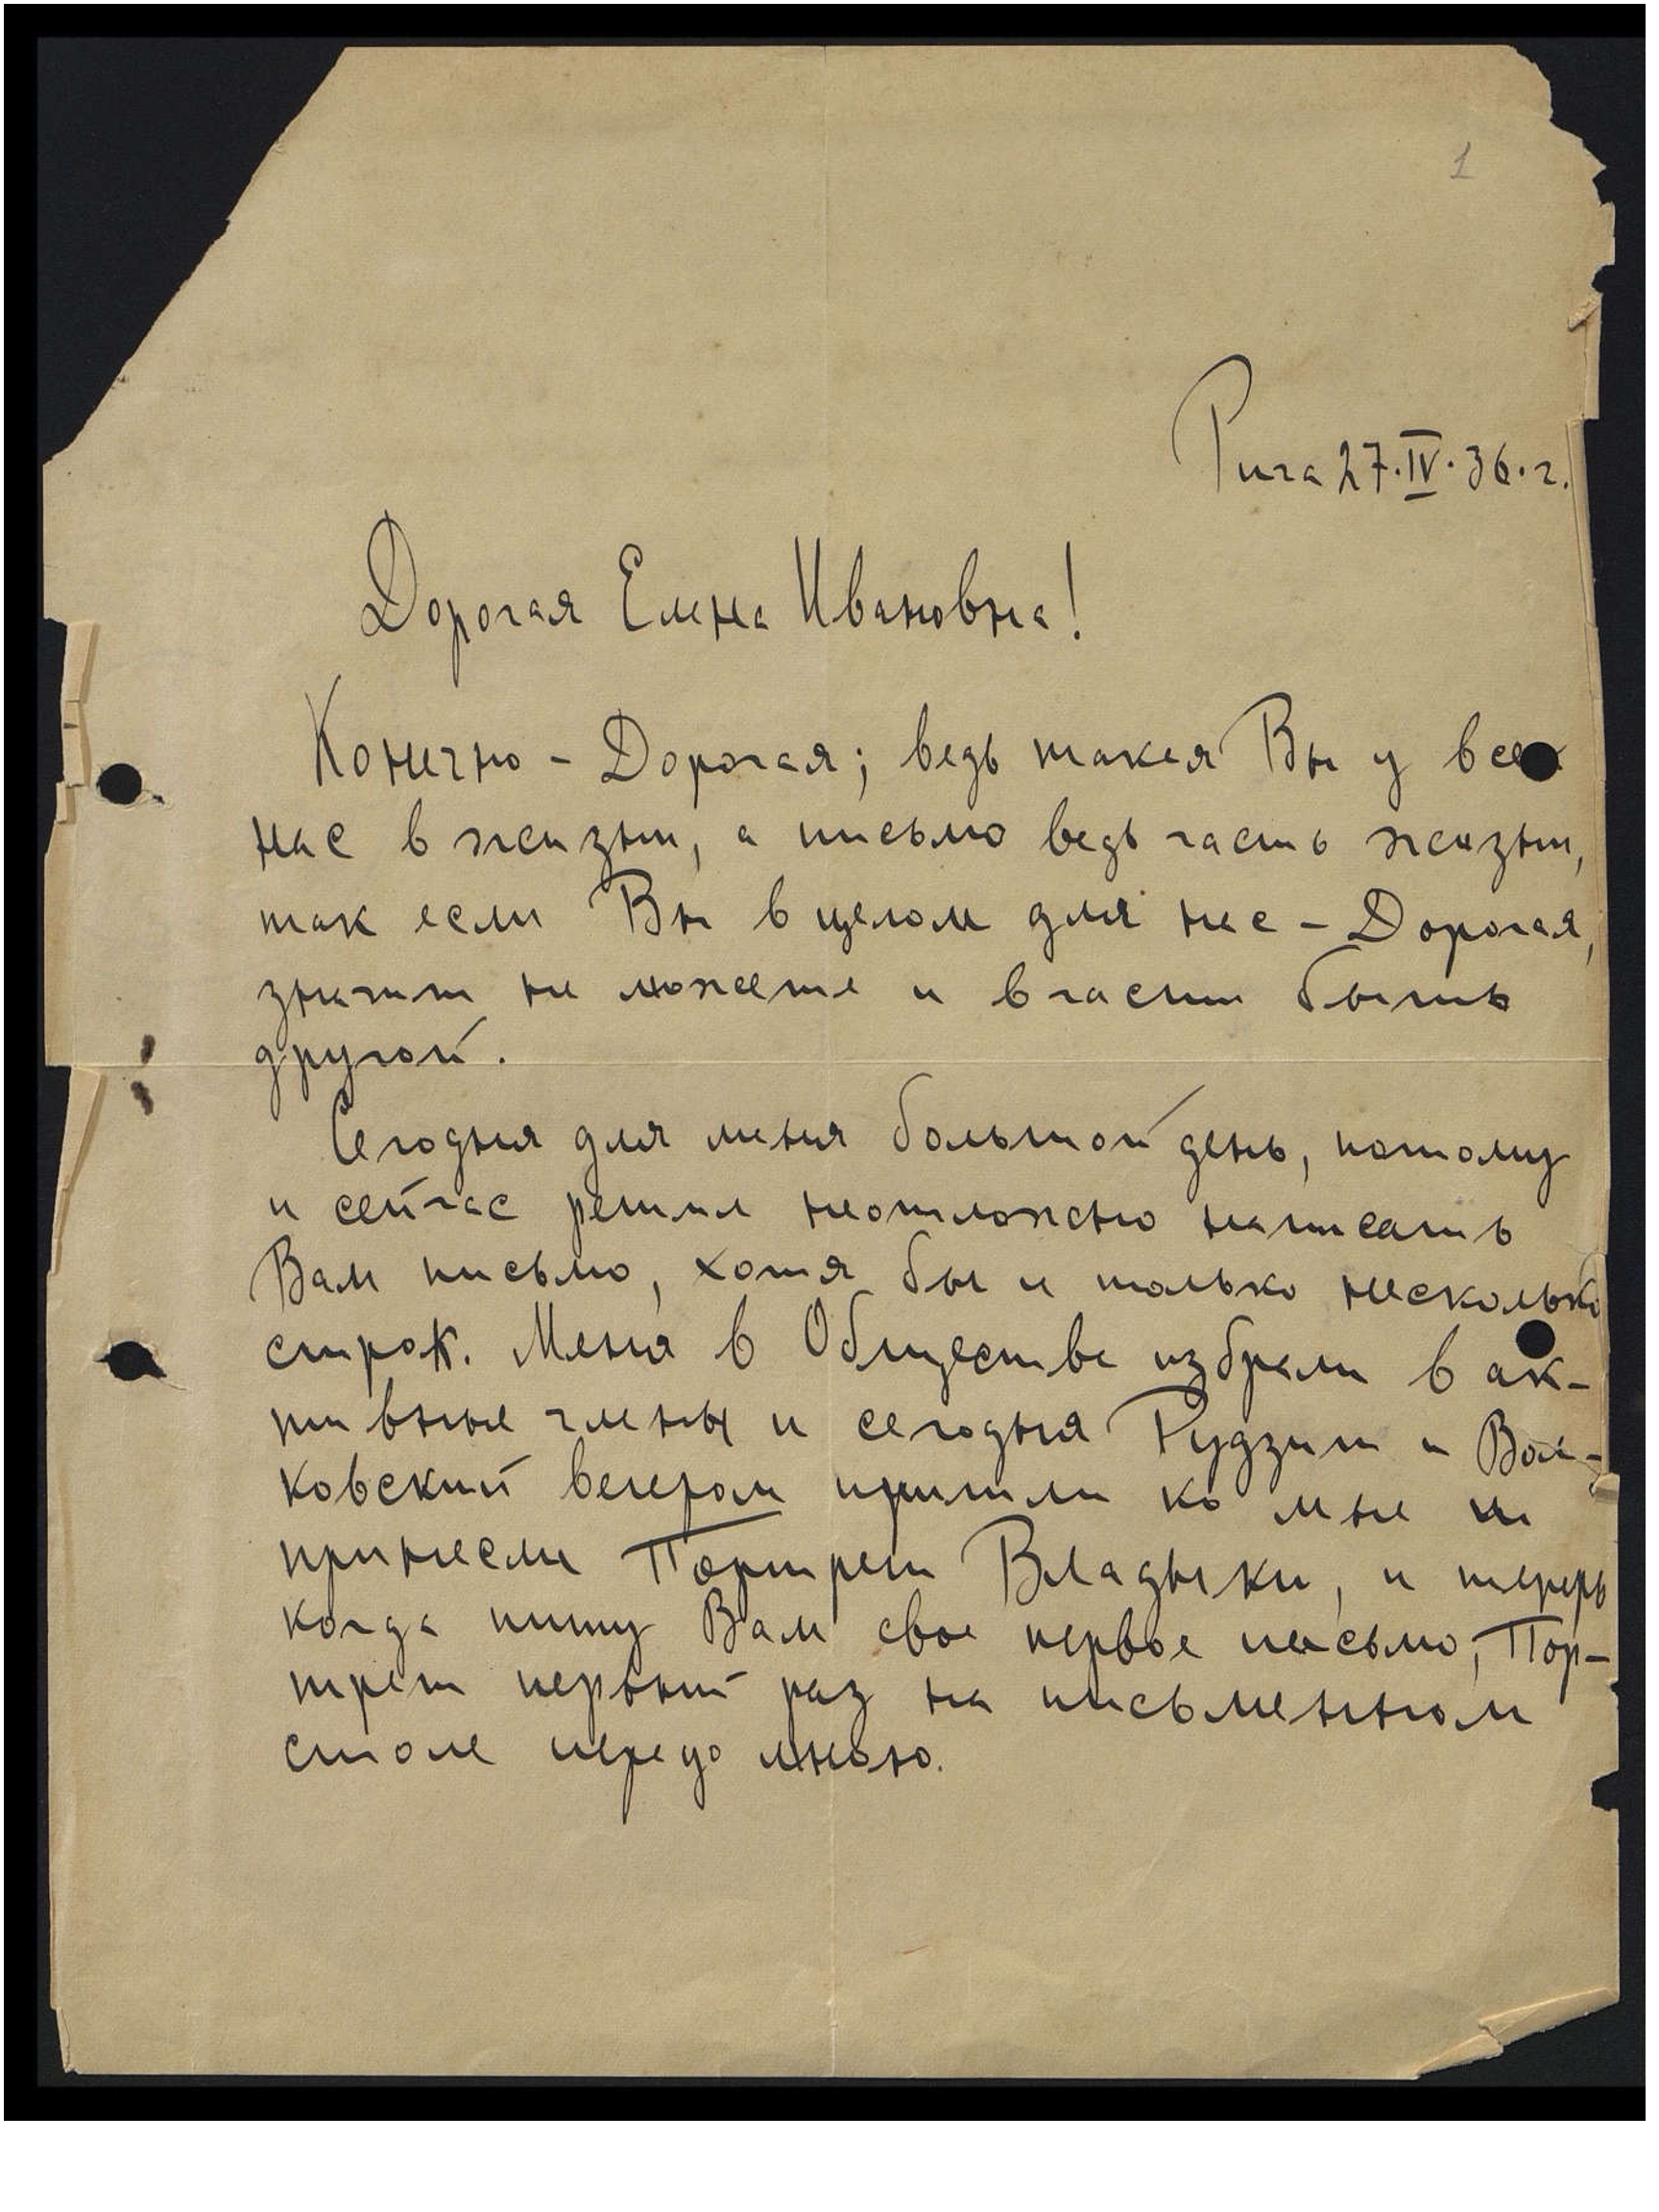 1
Рига 27.IV.36.г.
Дорогая Елена Ивановна!
Конечно - Дорогая; ведь такая Вы у
нас в жизни, а письмо ведь часть жизни,
так если Вы в целом для нас - Дорогая,
значит не можете и в части быть
другой.
Сегодня для меня большой день, потому
и сейчас решил неотложно написать
Вам письмо, хотя бы и только несколько
строк. Меня в Обществе избрали в ак-
тивные члены и сегодня Рудзит и Вал-
ковский вечером пришли ко мне и
принесли Портрет Владыки, и теперь
когда пишу Вам свое первое письмо, Пор-
трет первый раз на письменном
столе передо мною.